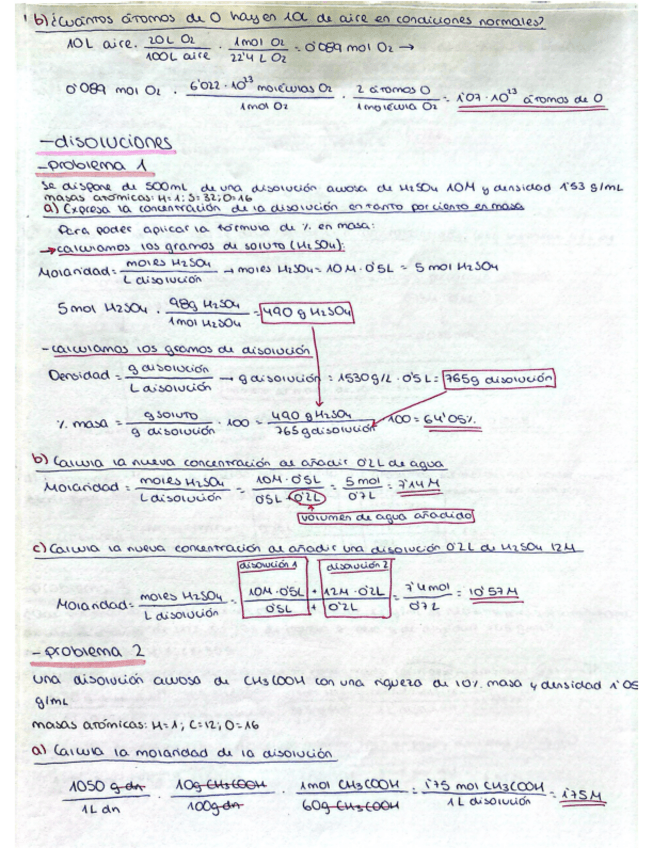 b) ¿Cuántos átomos de O hay en 10L de aire en condiciones normales?
10L aire · 20L O2 / 100L aire · 1mol O2 / 22'4 L O2 = 0'089 mol O2 →
0'089 mol O2 · 6'022·10²³ moléculas O2 / 1mol O2 · 2 átomos O / 1molécula O2 = 1'07·10²³ átomos de O
-disoluciones
-problema 1
se dispone de 500mL de una disolución acuosa de H2SO4 10M y densidad 1'53 g/mL
masas atómicas: H=1; S=32; O=16
a) Expresa la concentración de la disolución en tanto por ciento en masa
Para poder aplicar la fórmula de % en masa:
→ calculamos los gramos de soluto (H2SO4):
Molaridad = moles H2SO4 / L disolución → moles H2SO4 = 10M · 0'5L = 5 mol H2SO4
5 mol H2SO4 · 98g H2SO4 / 1mol H2SO4 = 490 g H2SO4
-calculamos los gramos de disolución
Densidad = g disolución / L disolución → g disolución = 1530g/L · 0'5L = 765g disolución
% masa = g soluto / g disolución · 100 = 490 g H2SO4 / 765g disolución · 100 = 64'05%
b) Calcula la nueva concentración al añadir 0'2L de agua
Molaridad = moles H2SO4 / L disolución = 10M · 0'5L / 0'5L + 0'2L = 5 mol / 0'7L = 7'14 M
volumen de agua añadido
c) Calcula la nueva concentración al añadir una disolución 0'2L de H2SO4 12M
disolución 1 disolución 2
Molaridad = moles H2SO4 / L disolución = 10M · 0'5L + 12M · 0'2L / 0'5L + 0'2L = 7'4mol / 0'7L = 10'57M
-problema 2
una disolución acuosa de CH3COOH con una riqueza de 10% masa y densidad 1'05
g/mL
masas atómicas: H=1; C=12; O=16
a) Calcula la molaridad de la disolución
1050 g dn / 1L dn · 10g CH3COOH / 100g dn · 1mol CH3COOH / 60g CH3COOH = 1'75 mol CH3COOH / 1L disolución = 1'75M